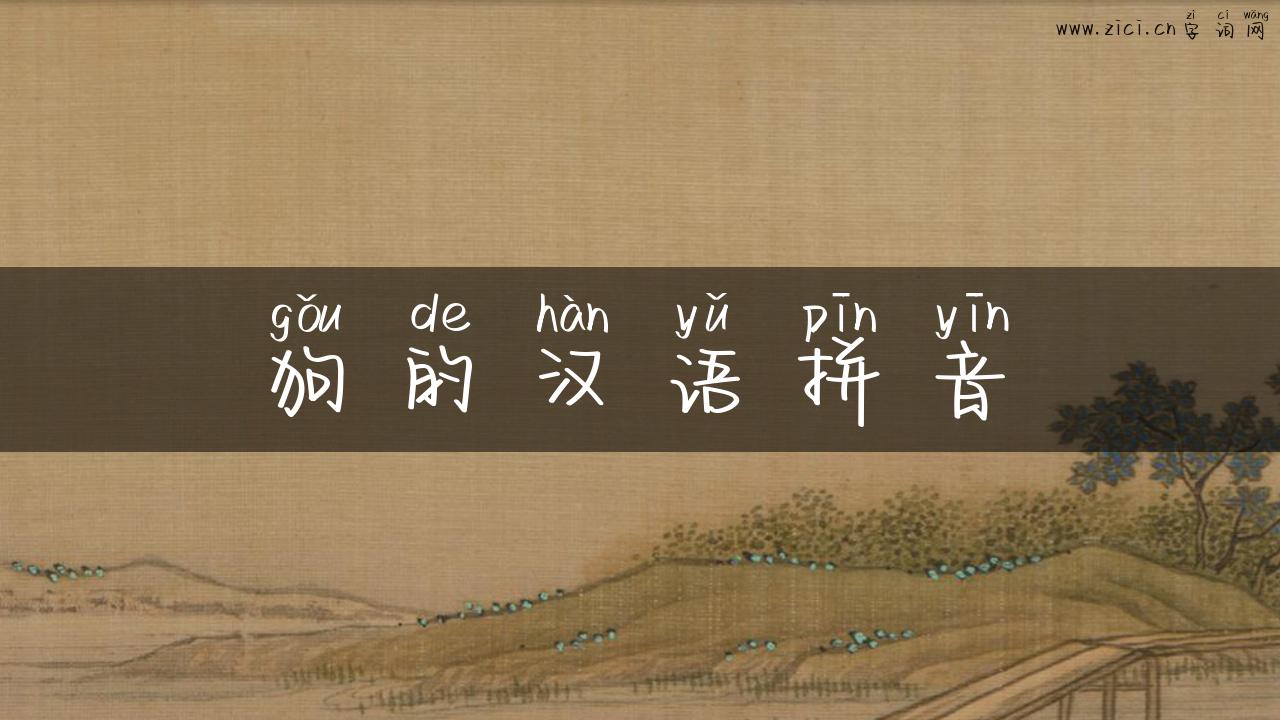 zì cí wǎng
www.zici.cn 字 词 网
gǒu de hàn yǔ pīn yīn
狗 的 汉 语 拼 音